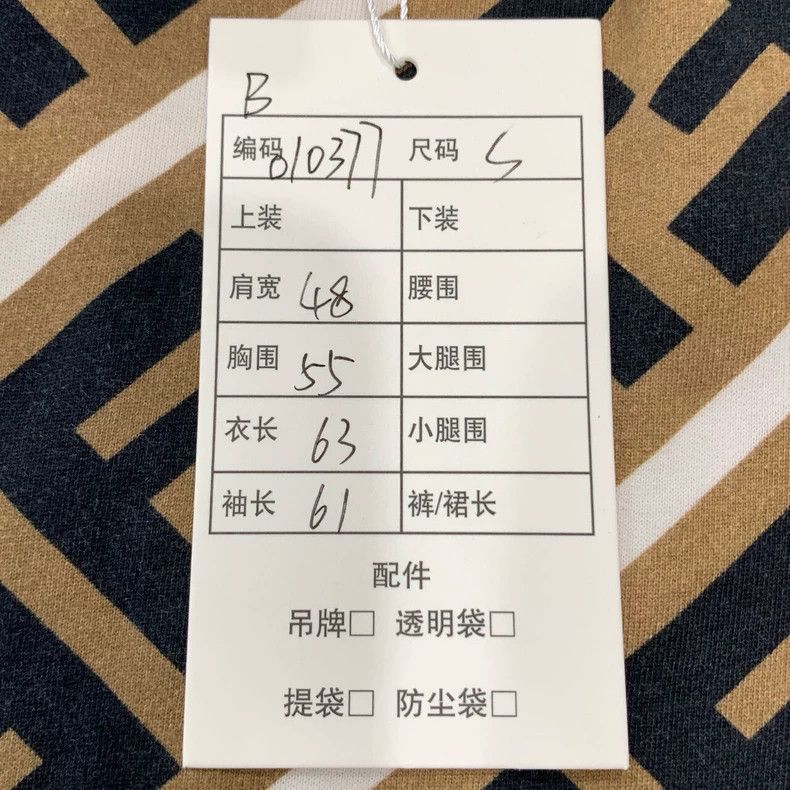 B
编码 010377 尺码 S
上装 下装
肩宽 48 腰围
胸围 55 大腿围
衣长 63 小腿围
袖长 61 裤/裙长
配件
吊牌□ 透明袋□
提袋□ 防尘袋□